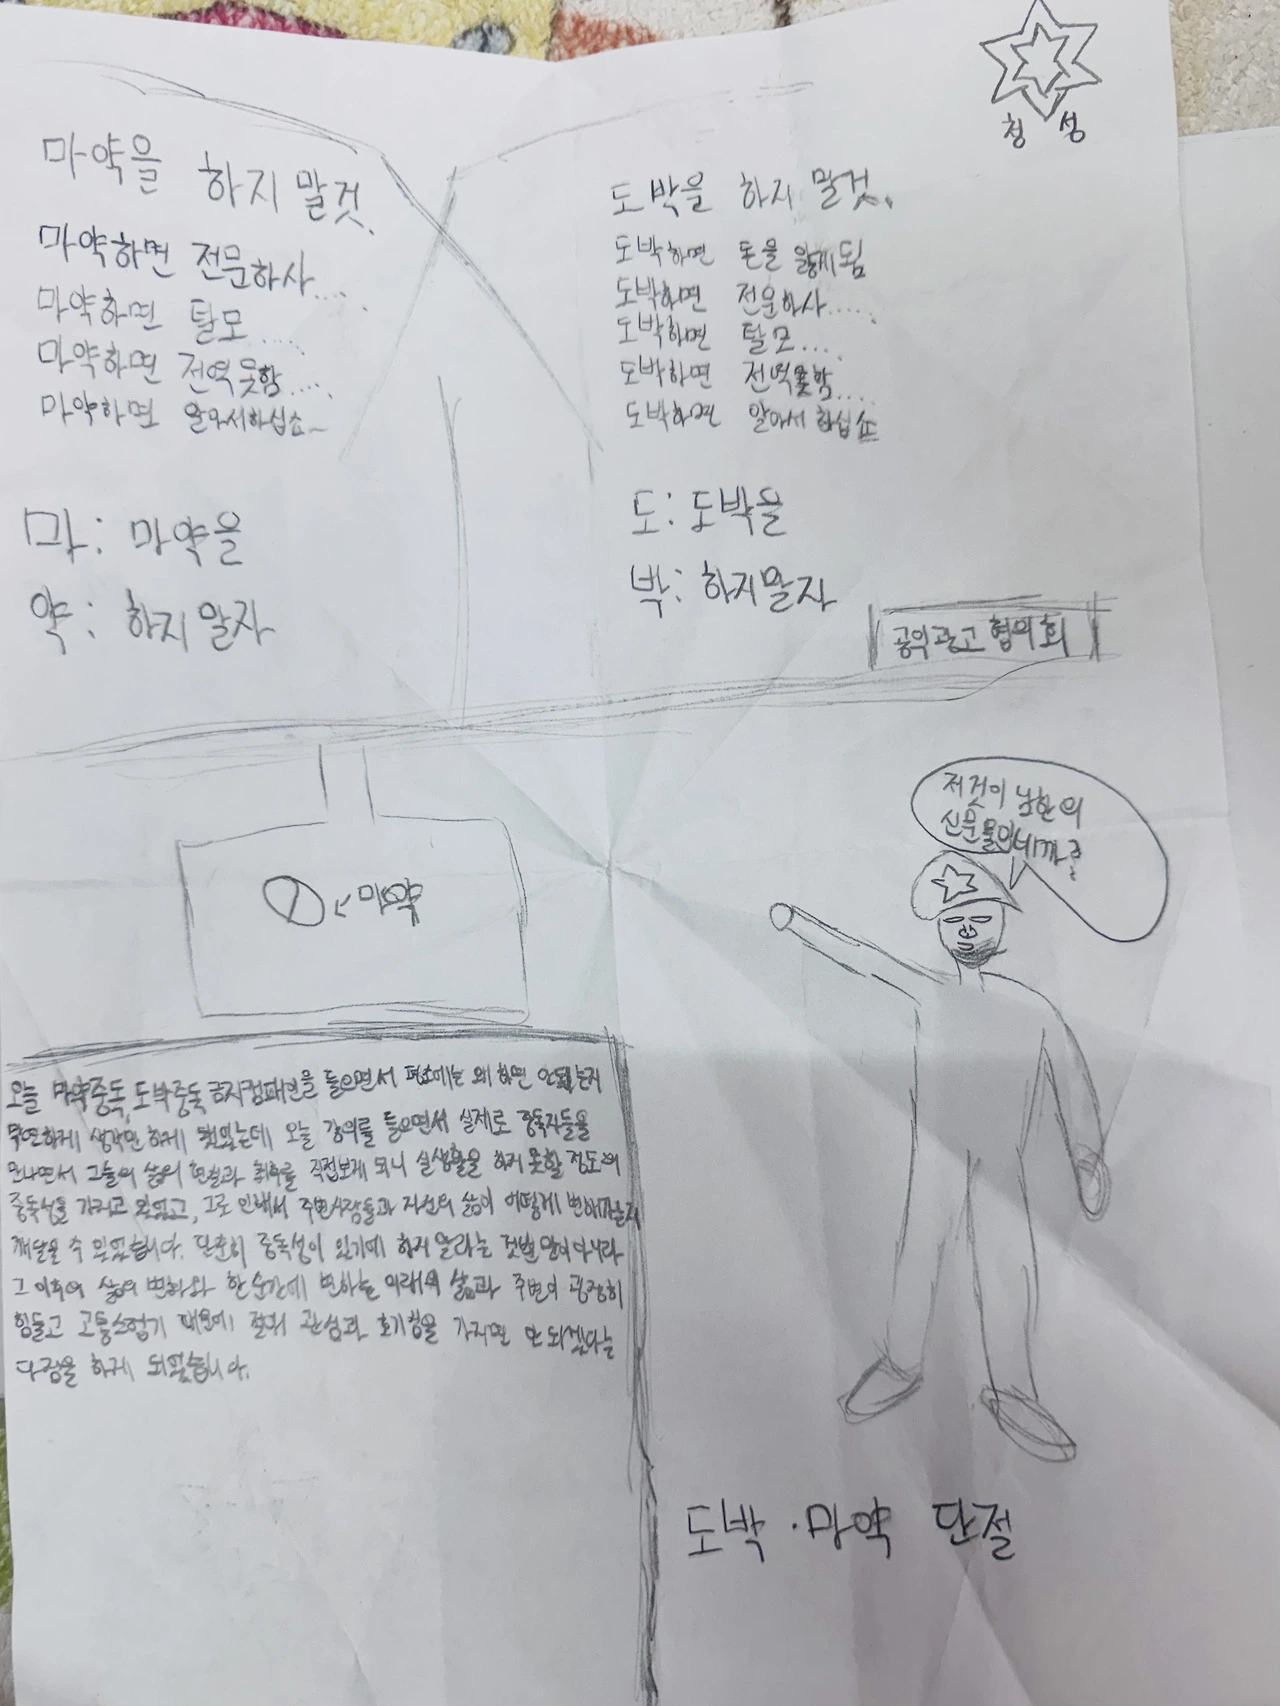 청 성
마약을 하지 말것.
마약하면 전문하사....
마약하면 탈모....
마약하면 전역못함....
마약하면 알아서하십쇼~
마: 마약을
약: 하지 말자
도박을 하지 말것.
도박하면 돈을 잃게됨
도박하면 전문하사.....
도박하면 탈모....
도박하면 전역못함....
도박하면 알아서 하십쇼
도: 도박을
박: 하지말자
공익광고협의회
마약
저것이 남한의
신문물입네까?
오늘 마약중독, 도박중독 금지캠페인을 들으면서 평소에는 왜 하면 안되는지
막연하게 생각만 하게 됐었는데 오늘 강의를 들으면서 실제로 중독자들을
만나면서 그들의 삶의 현실과 직접보게 되니 실생활을 하지 못할 정도의
중독성을 가지고 있었고, 그로 인해서 주변사람들과 자신의 삶이 어떻게 변해가는지
깨달을 수 있었습니다. 단순히 중독성이 있기에 하지 말라는 것뿐만이 아니라
그 이후의 삶의 변화와 한순간에 변하는 미래의 삶과 주변이 굉장히
힘들고 고통스럽기 때문에 절대 관심과 호기심을 가지면 안 되겠다는
다짐을 하게 되었습니다.
도박·마약 단절